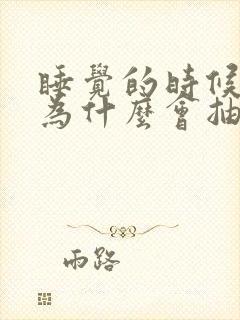 睡覺的時候
為什麼會抽
雨路